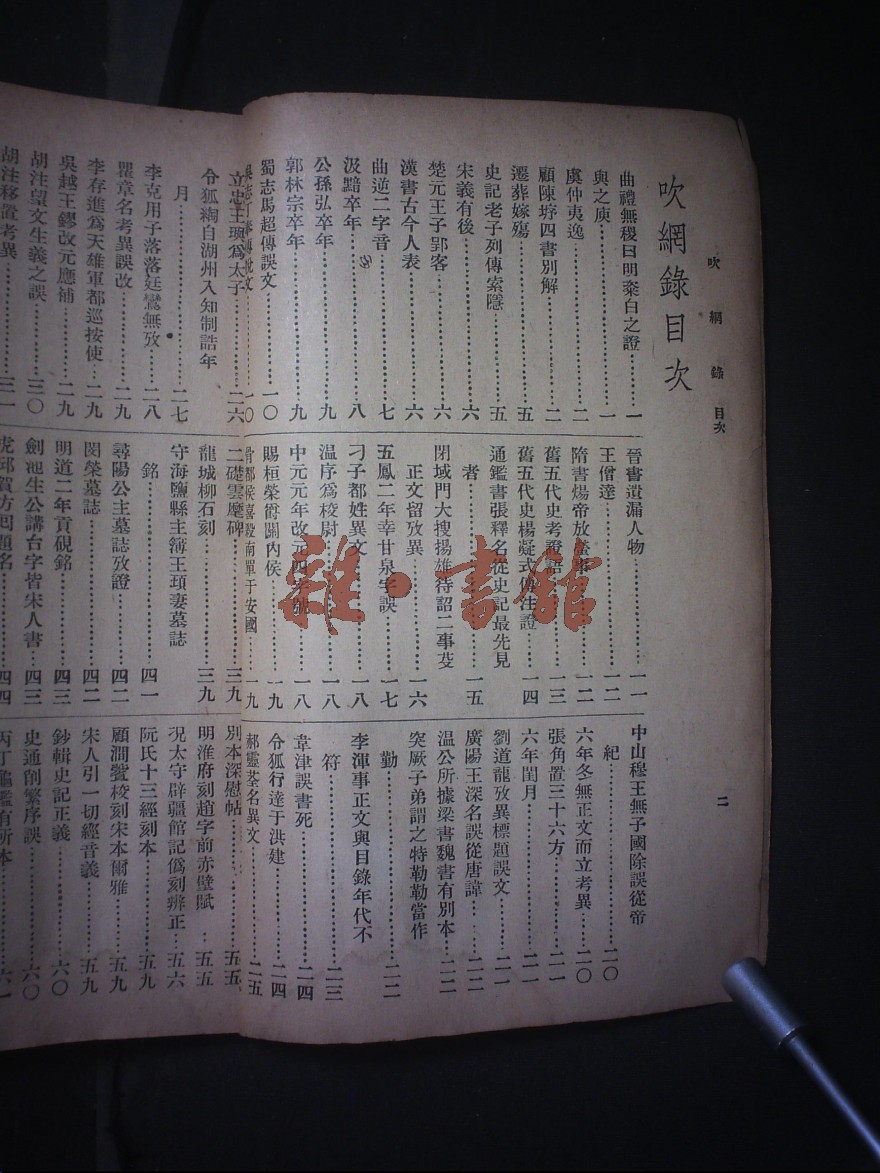 吹網錄 目次
二
吹網錄目次
曲禮無稷曰明粢白之證…………一
與之庾…………一
虞仲夷逸…………二
顧陳垿四書別解…………二
遷葬嫁殤…………五
史記老子列傳索隱…………五
宋義有後…………六
楚元王子郢客…………六
漢書古今人表…………六
曲逆二字音…………七
汲黯卒年…………八
公孫弘卒年…………九
郭林宗卒年…………九
蜀志馬超傳誤文…………一〇
晉書遺漏人物…………一一
王僧達…………一二
隋書煬帝放螢事…………一二
舊五代史考證語…………一三
舊五代史楊凝式傳注證…………一四
通鑑書張釋名從史記最先見
者…………一五
閉城門大搜揚雄待詔二事芟
正文留攷異…………一六
五鳳二年幸甘泉字誤…………一七
刁子都姓異文…………一八
温序爲校尉…………一八
中元元年改元四字號…………一八
賜桓榮爵關內侯…………一九
骨都侯喜殺南單于安國…………一九
中山穆王無子國除誤從帝
紀…………二〇
六年冬無正文而立考異…………二〇
張角置三十六方…………二一
六年閏月…………二一
劉道龍攷異標題誤文…………二一
廣陽王深名誤從唐諱…………二二
温公所據梁書魏書有別本…………二二
突厥子弟謂之特勒勒當作
勤…………二二
李渾事正文與目錄年代不
符…………二三
韋津誤書死…………二四
令狐行達于洪建…………二四
郝靈荃名異文…………二五
立忠王璵爲太子…………二六
令狐綯自湖州入知制誥年
月…………二七
李克用子落落廷鸞無攷…………二八
瞿章名考異誤改…………二九
李存進爲天雄軍都巡按使…………二九
吳越王鏐改元應補…………二九
胡注望文生義之誤…………三〇
胡注移置考異…………三一
二礎雲麾碑…………三九
龍城柳石刻…………三九
守海鹽縣主簿王頊妻墓誌
銘…………四一
尋陽公主墓誌攷證…………四二
閔榮墓誌…………四二
明道二年貢硯銘…………四三
劍池生公講台字皆宋人書…………四三
虎邱賀方回題名…………四四
別本深慰帖…………五五
明淮府刻趙字前赤壁賦…………五五
況太守辟疆館記僞刻辨正…………五六
阮氏十三經刻本…………五九
顧澗薲校刻宋本爾雅…………五九
宋人引一切經音義…………五九
鈔輯史記正義…………六〇
史通削繁序誤…………六〇
丙丁龜鑑有所本…………六一
雜·書館